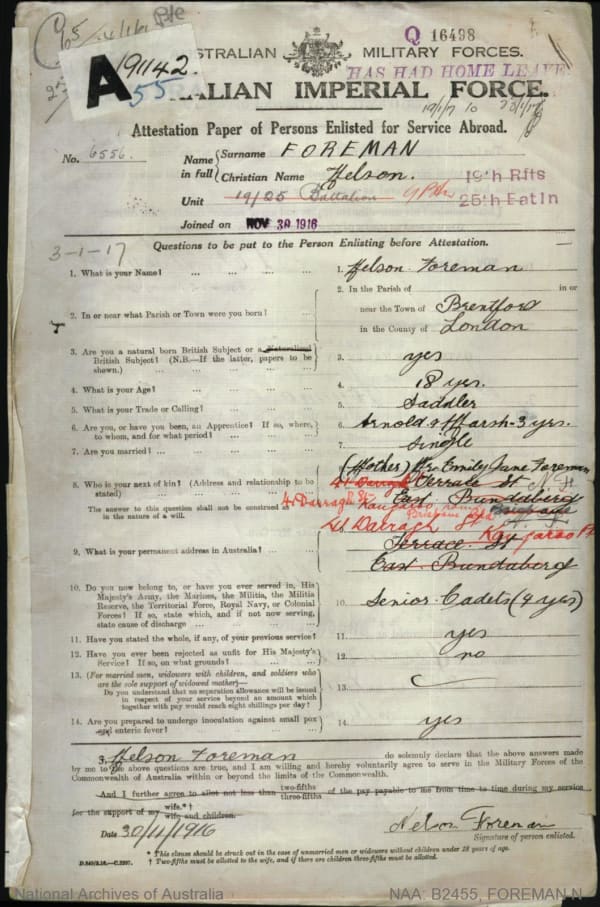 Q 16498
AUSTRALIAN MILITARY FORCES.
HAS HAD HOME LEAVE
A 19142.
55
RALIAN IMPERIAL FORCE.
Attestation Paper of Persons Enlisted for Service Abroad.
No. 6556. Name in full { Surname FOREMAN
Christian Name Nelson.
19th Rfts
Unit 19/25 Battalion
25th Batln
Joined on NOV 30 1916
3-1-17 Questions to be put to the Person Enlisting before Attestation.
1. What is your Name? ... ... ... ... 1. Nelson Foreman
2. In or near what Parish or Town were you born? ... 2. In the Parish of in or
near the Town of Brentford
in the County of London
3. Are you a natural born British Subject or a Naturalised
British Subject? (N.B.—If the latter, papers to be
shown.) ... 3. yes
4. What is your Age? ... 4. 18 yrs.
5. What is your Trade or Calling? ... 5. Saddler
6. Are you, or have you been, an Apprentice? If so, where,
to whom, and for what period? ... 6. Arnold & Marsh - 3 yrs.
7. Are you married? ... 7. Single
8. Who is your next of kin? (Address and relationship to be
stated) ... 8. (Mother) Mrs Emily Jane Foreman
Terrace St
East Bundaberg
The answer to this question shall not be construed as
in the nature of a will.
41 Darragh St
Kangaroo
Brisbane Qld
41 Darragh St
Kangaroo Pt
9. What is your permanent address in Australia? ... 9. Terrace St
East Bundaberg
10. Do you now belong to, or have you ever served in, His
Majesty's Army, the Marines, the Militia, the Militia
Reserve, the Territorial Force, Royal Navy, or Colonial
Forces? If so, state which, and if not now serving,
state cause of discharge ... 10. Senior Cadets (4 yrs)
11. Have you stated the whole, if any, of your previous service? 11. yes
12. Have you ever been rejected as unfit for His Majesty's
Service? If so, on what grounds? ... 12. no
13. (For married men, widowers with children, and soldiers who
are the sole support of widowed mother)—
Do you understand that no separation allowance will be issued
in respect of your service beyond an amount which
together with pay would reach eight shillings per day? 13.
14. Are you prepared to undergo inoculation against small pox
and enteric fever? ... 14. yes
I, Nelson Foreman do solemnly declare that the above answers made
by me to the above questions are true, and I am willing and hereby voluntarily agree to serve in the Military Forces of the
Commonwealth of Australia within or beyond the limits of the Commonwealth.
And I further agree to allot not less than two-fifths three-fifths of the pay payable to me from time to time during my service
for the support of my wife.*† wife and children.
Date 30/11/1916
Nelson Foreman
Signature of person enlisted.
* This clause should be struck out in the case of unmarried men or widowers without children under 18 years of age.
† Two-fifths must be allotted to the wife, and if there are children three-fifths must be allotted.
National Archives of Australia
NAA: B2455, FOREMAN N